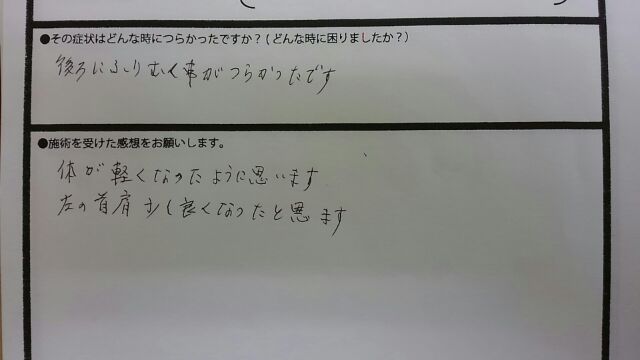 ●その症状はどんな時につらかったですか？(どんな時に困りましたか？)
後ろにふりむく事がつらかったです
●施術を受けた感想をお願いします。
体が軽くなったように思います
左の首肩少し良くなったと思ます